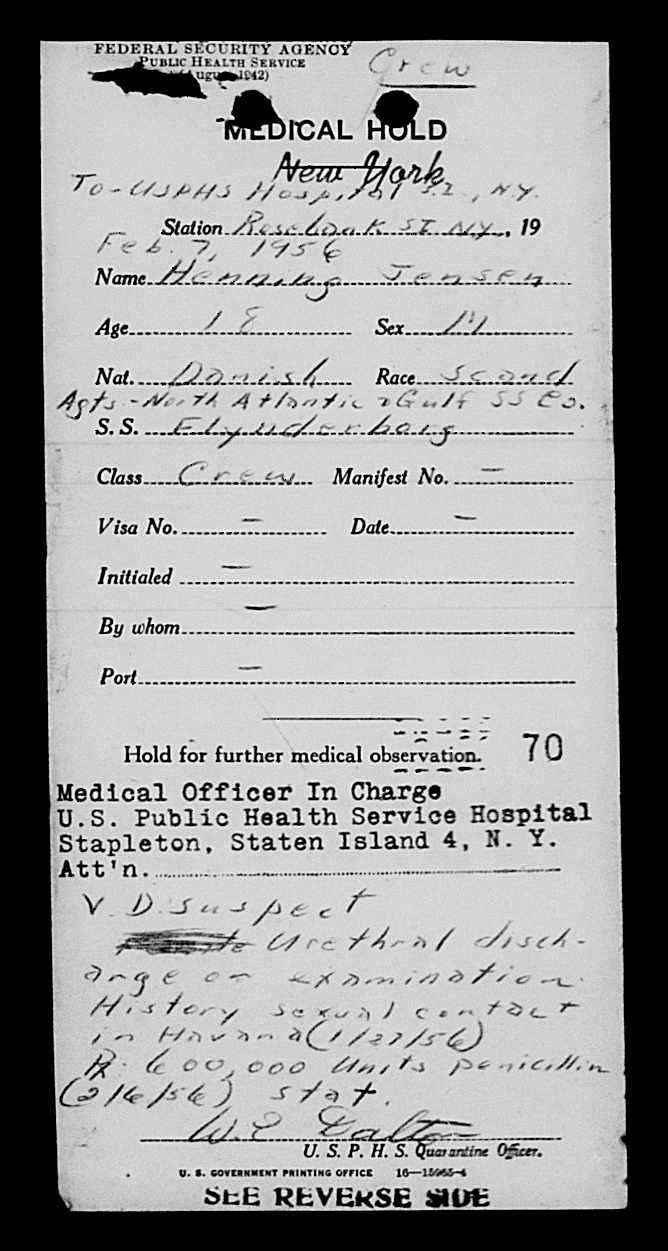 FEDERAL SECURITY AGENCY
PUBLIC HEALTH SERVICE
(August 1942)
Crew
MEDICAL HOLD
New York
To - USPHS Hospital S.I., N.Y.
Station Rosebank SI NY, 19
Feb. 7, 1956
Name Henning Jensen
Age 18 Sex M
Nat. Danish Race Scand
Agts - North Atlantic & Gulf SS Co.
S. S. Flynderborg
Class Crew Manifest No. —
Visa No. — Date —
Initialed —
By whom —
Port —
Hold for further medical observation. 70
Medical Officer In Charge
U.S. Public Health Service Hospital
Stapleton, Staten Island 4, N. Y.
Att'n.
V.D. suspect
Urethral disch-
arge on examination.
History sexual contact
in Havana (1/27/56)
Rx: 600,000 Units penicillin
(2/6/56) stat.
W.E. Dalton
U. S. P. H. S. Quarantine Officer.
U. S. GOVERNMENT PRINTING OFFICE 16—15965-4
SEE REVERSE SIDE